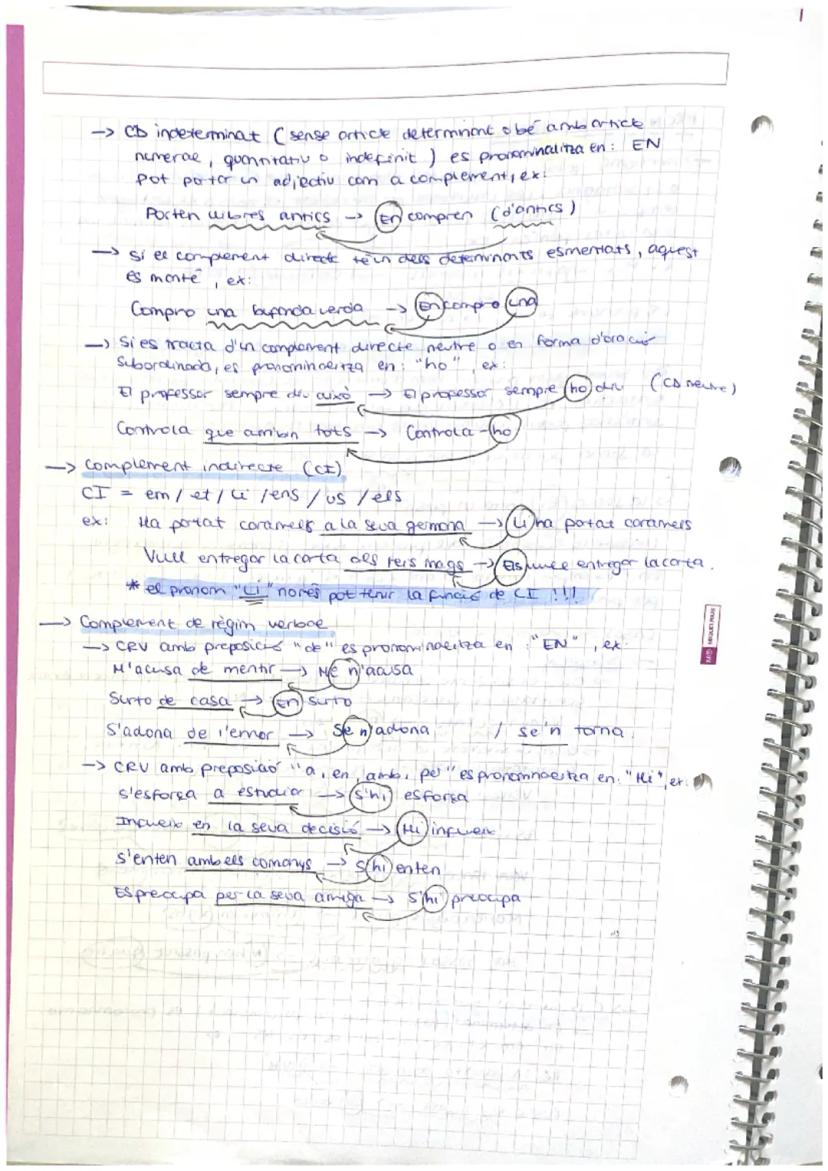 → CD indeterminat (sense article determinant o bé amb article
numeral, quantitatiu o indefinit) es pronominalitza en: EN
pot portar un adjectiu com a complement, ex:
Porten llibres antics → En compren (d'antics)
→ Si el complement directe té un dels determinants esmentats, aquest
es manté, ex:
Compro una bufanda verda → En compro una
→ Si es tracta d'un complement directe neutre o en forma d'oració
subordinada, es pronominalitza en: "ho", ex:
El professor sempre diu això → El professor sempre ho diu (CD neutre)
Controla que arribin tots → Controla-ho
→ Complement indirecte (CI)
CI = em / et / li / ens / us / els
ex: Ha portat caramels a la seva germana → Li ha portat caramels
Vull entregar la carta als reis mags → Els vull entregar la carta.
* el pronom "Li" només pot tenir la funció de CI !!!
→ Complement de règim verbal
→ CRV amb preposició "de" es pronominalitza en: "EN", ex:
M'acusa de mentir → Me n'acusa
Surto de casa → En surto
S'adona de l'error → Se n'adona / se'n torna.
→ CRV amb preposició "a, en, amb, per" es pronominalitza en: "Hi", ex:
s'esforça a estudiar → S'hi esforça
Influeix en la seva decisió → Hi influeix
S'enten amb els companys → S'hi enten
Es preocupa per la seva amiga → S'hi preocupa
MIQUELRIUS